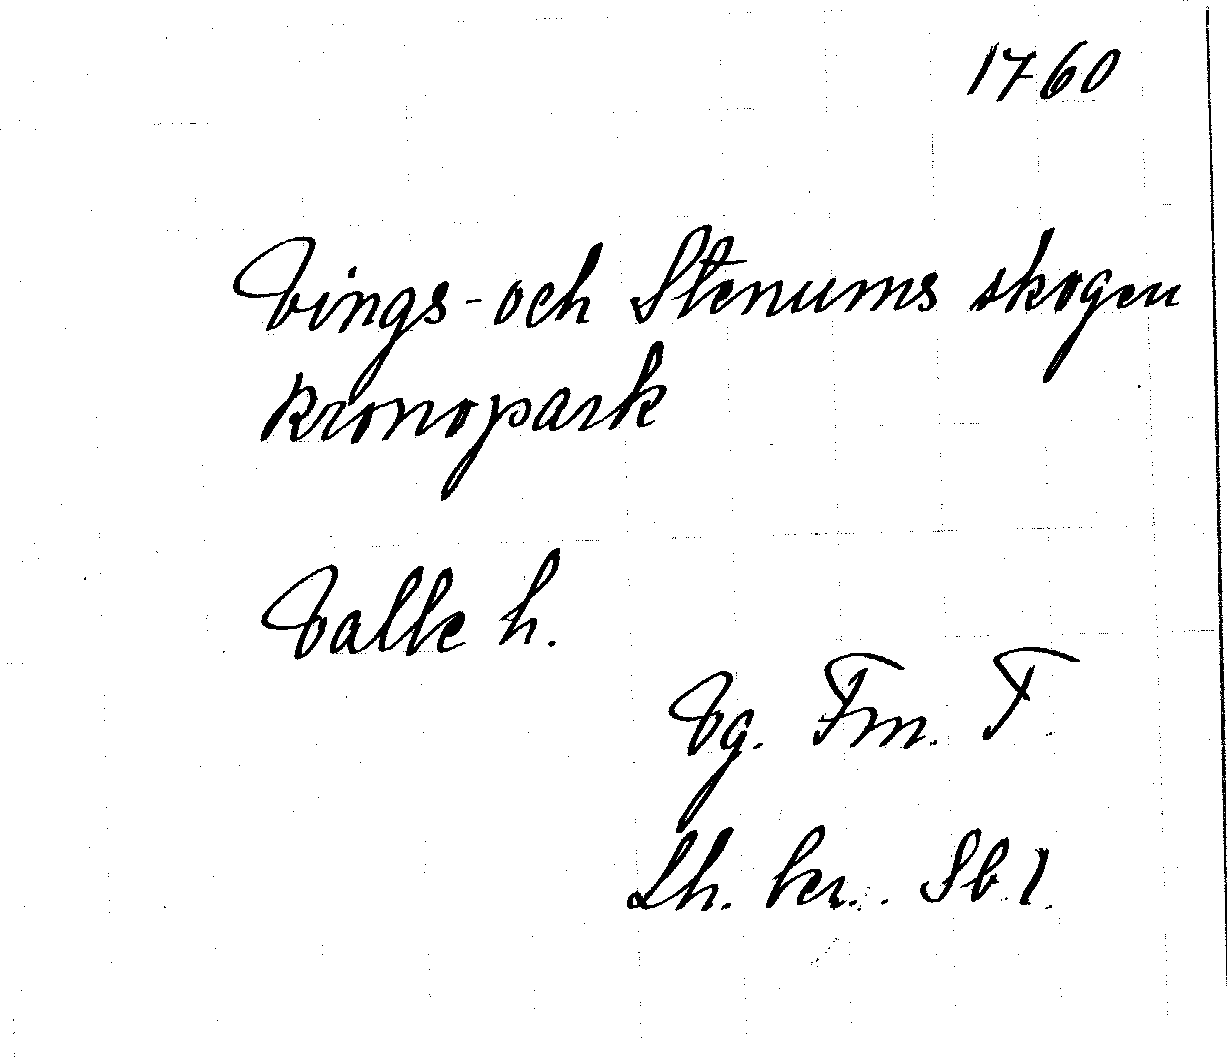 1760
Vings- och Stenums skogen
kronopark
Valle h.
Vg. Fm. F.
Lh. ber. Sb. 1.